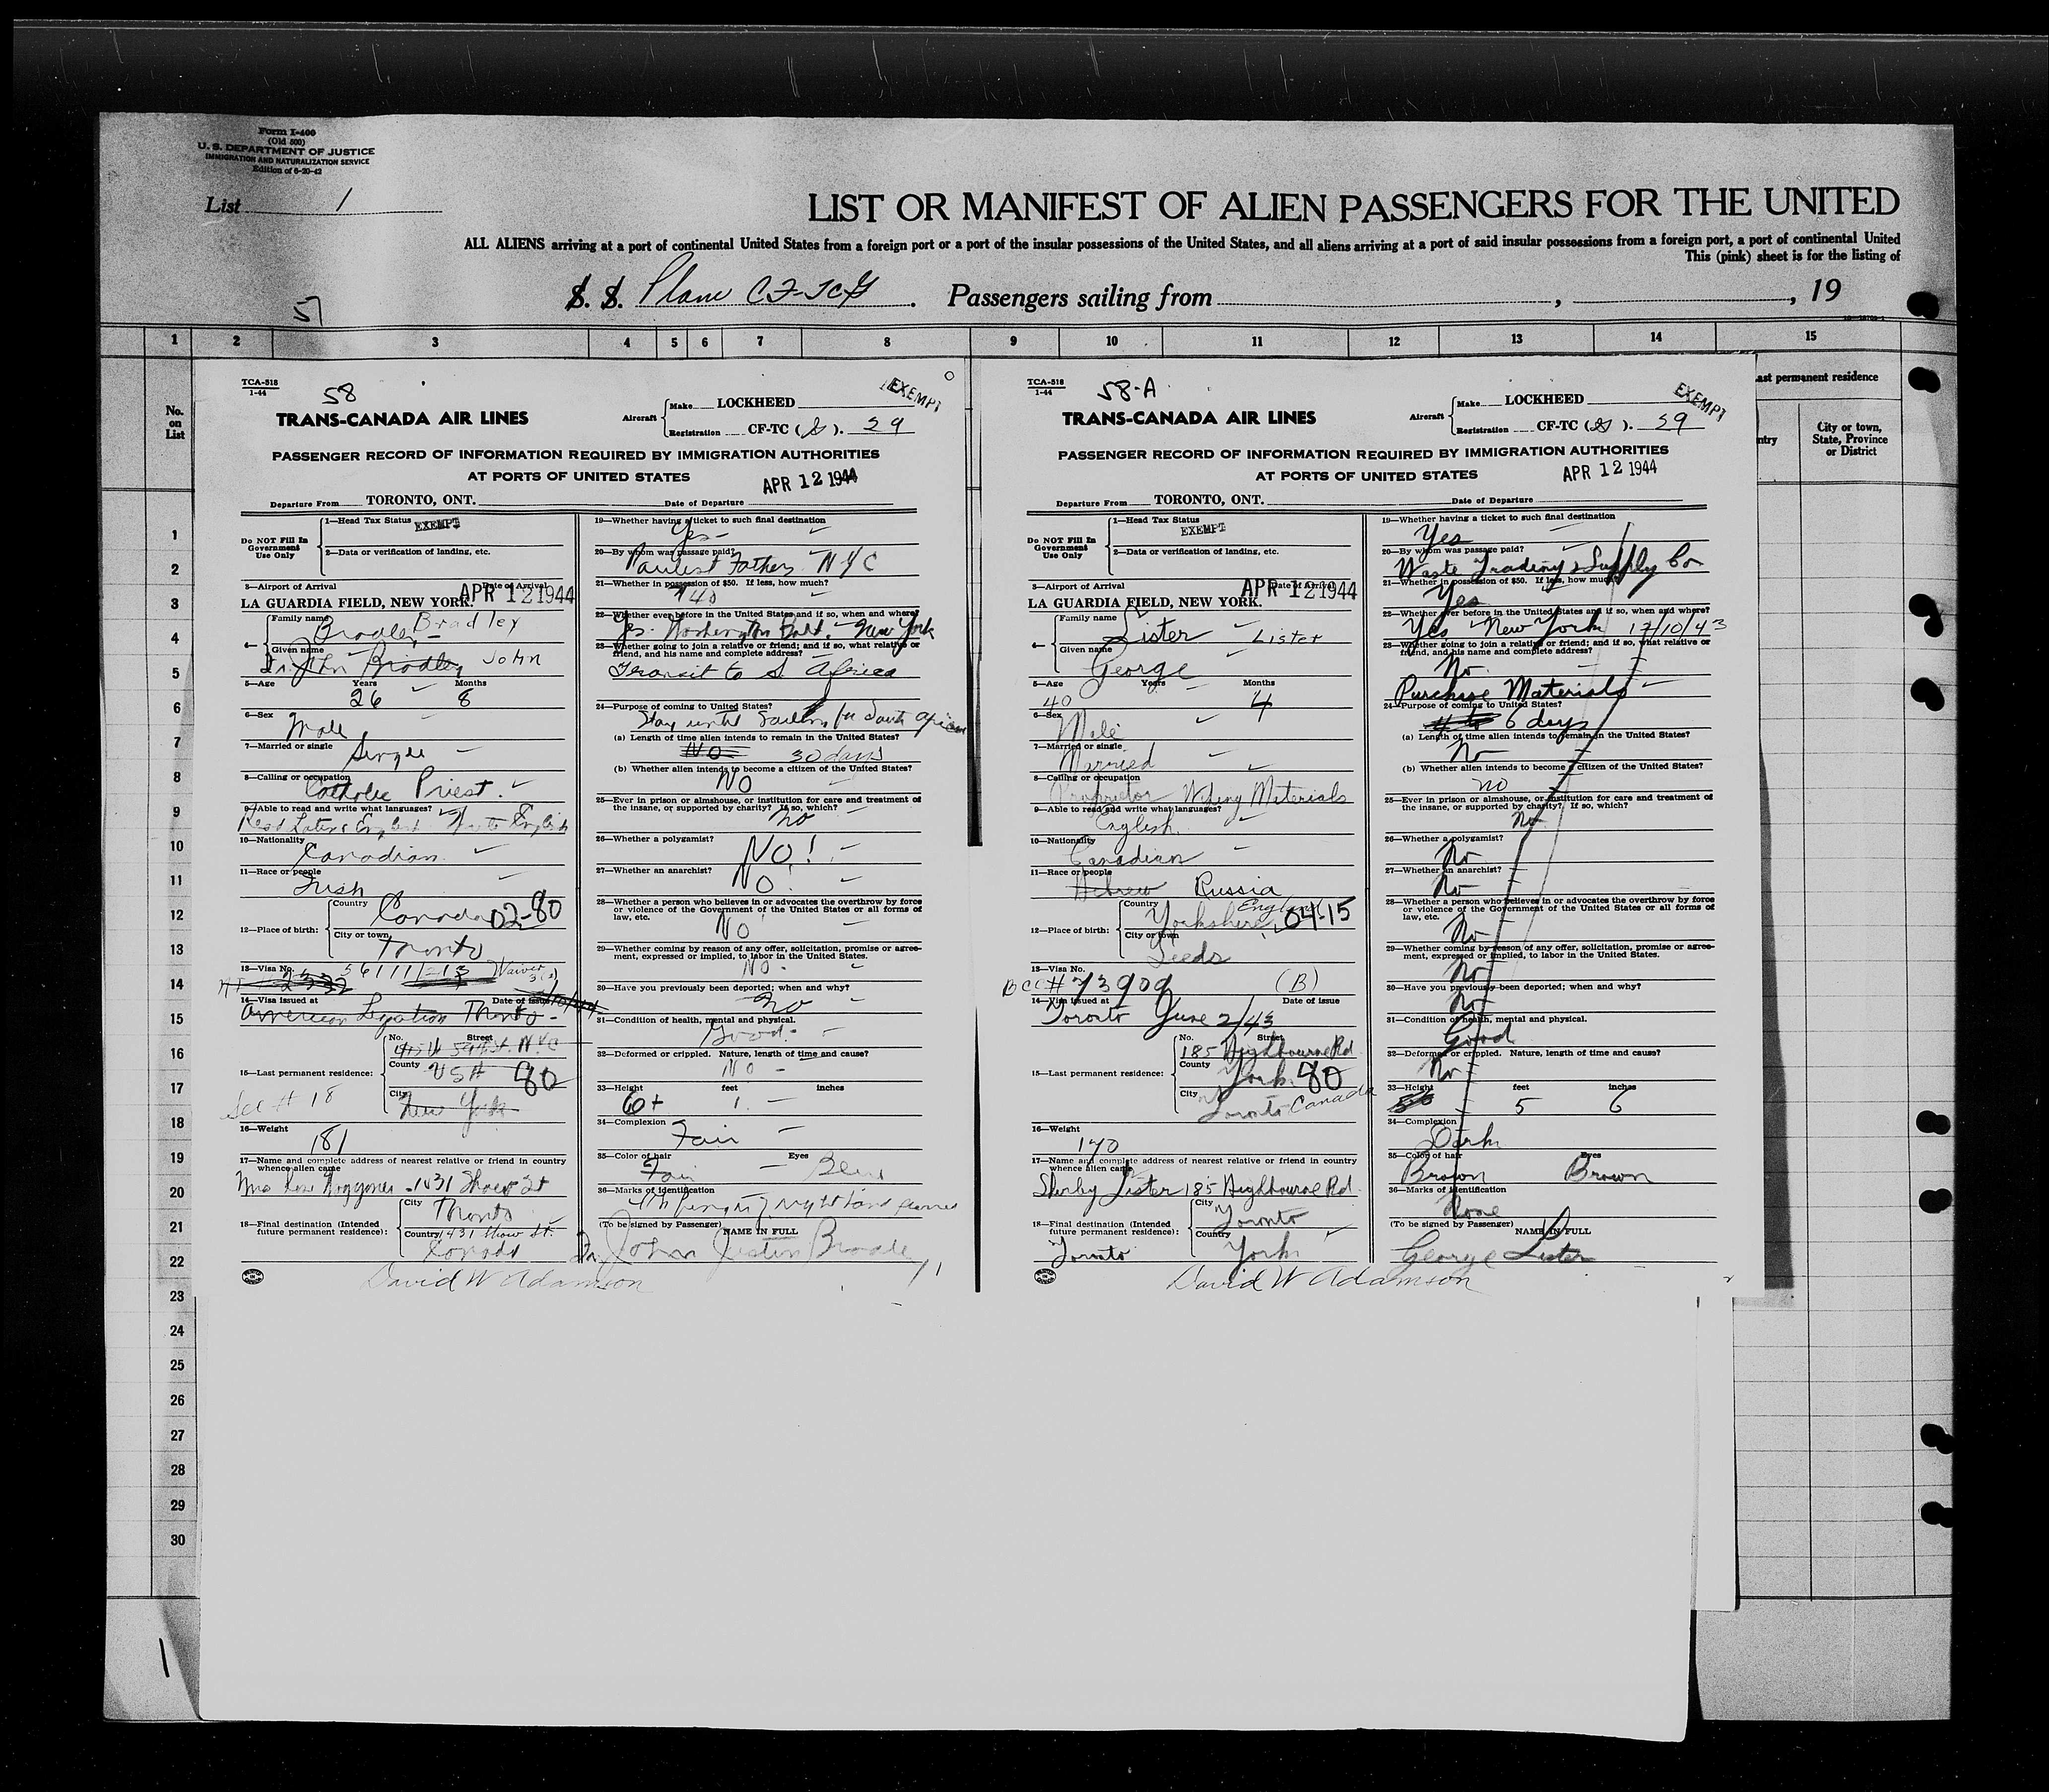 Form I-400
(Old 500)
U. S. DEPARTMENT OF JUSTICE
IMMIGRATION AND NATURALIZATION SERVICE
Edition of 6-20-42
List 1
LIST OR MANIFEST OF ALIEN PASSENGERS FOR THE UNITED
ALL ALIENS arriving at a port of continental United States from a foreign port or a port of the insular possessions of the United States, and all aliens arriving at a port of said insular possessions from a foreign port, a port of continental United
This (pink) sheet is for the listing of
S. S. Plane CF-TCG . Passengers sailing from , , 19
57
1 2 3 4 5 6 7 8 9 10 11 12 13 14 15
No. on List
Last permanent residence
City or town, State, Province or District
TCA-518
1-44
58
EXEMPT
TRANS-CANADA AIR LINES
Aircraft
Make LOCKHEED
Registration CF-TC ( ). 29
PASSENGER RECORD OF INFORMATION REQUIRED BY IMMIGRATION AUTHORITIES
AT PORTS OF UNITED STATES
APR 12 1944
Departure From TORONTO, ONT. Date of Departure
Do NOT Fill In Government Use Only
1—Head Tax Status EXEMPT
2—Data or verification of landing, etc.
3—Airport of Arrival Date of Arrival
LA GUARDIA FIELD, NEW YORK. APR 12 1944
4— Family name Bradley Bradley
Given name John Bradley John
5—Age Years Months
26 8
6—Sex
Male
7—Married or single
Single
8—Calling or occupation
Catholic Priest.
9—Able to read and write what languages?
Read Latin & English English
10—Nationality
Canadian
11—Race or people
Irish
12—Place of birth: Country Canada 02-80
City or town Toronto
13—Visa No. 56111/213 Waiver
14—Visa issued at Date of issue
American Legation Toronto
15—Last permanent residence: No. Street
415 W 59th St. N.Y.C
County USA 80
City New York
See # 18
16—Weight
181
17—Name and complete address of nearest relative or friend in country whence alien came
Mrs Rose 1431 Shaw St
18—Final destination (Intended future permanent residence): City Toronto
Country 1431 Shaw St.
Canada
David W Adamson
19—Whether having a ticket to such final destination
Yes
20—By whom was passage paid?
Paulist Fathers N Y C
21—Whether in possession of $50. If less, how much?
$40
22—Whether ever before in the United States and if so, when and where?
Yes. Washington Balt. New York
23—Whether going to join a relative or friend; and if so, what relative or friend, and his name and complete address?
Transit to S. Africa
24—Purpose of coming to United States?
Stay until sailing for South Africa
(a) Length of time alien intends to remain in the United States?
NO 30 days
(b) Whether alien intends to become a citizen of the United States?
NO
25—Ever in prison or almshouse, or institution for care and treatment of the insane, or supported by charity? If so, which?
No
26—Whether a polygamist?
NO!
27—Whether an anarchist?
NO!
28—Whether a person who believes in or advocates the overthrow by force or violence of the Government of the United States or all forms of law, etc.
NO
29—Whether coming by reason of any offer, solicitation, promise or agreement, expressed or implied, to labor in the United States.
NO
30—Have you previously been deported; when and why?
No
31—Condition of health, mental and physical.
Good
32—Deformed or crippled. Nature, length of time and cause?
NO
33—Height feet inches
6+ 1
34—Complexion
Fair
35—Color of hair Eyes
Fair Blue
36—Marks of identification
4th finger right hand
(To be signed by Passenger) NAME IN FULL
John Justin Bradley
TCA-518
1-44
58-A
EXEMPT
TRANS-CANADA AIR LINES
Aircraft
Make LOCKHEED
Registration CF-TC ( ). 29
PASSENGER RECORD OF INFORMATION REQUIRED BY IMMIGRATION AUTHORITIES
AT PORTS OF UNITED STATES
APR 12 1944
Departure From TORONTO, ONT. Date of Departure
Do NOT Fill In Government Use Only
1—Head Tax Status EXEMPT
2—Data or verification of landing, etc.
3—Airport of Arrival Date of Arrival
LA GUARDIA FIELD, NEW YORK. APR 12 1944
4— Family name Lister Lister
Given name George
5—Age Years Months
40 4
6—Sex
Male
7—Married or single
Married
8—Calling or occupation
Proprietor Materials
9—Able to read and write what languages?
English
10—Nationality
Canadian
11—Race or people
Hebrew Russia
12—Place of birth: Country Yorkshire England 04-15
City or town Leeds
13—Visa No.
BCC # 73909 (B)
14—Visa issued at Date of issue
Toronto June 2/43
15—Last permanent residence: No. Street
185 Highbourne Rd
County York 80
City Toronto Canada
16—Weight
170
17—Name and complete address of nearest relative or friend in country whence alien came
Shirley Lister 185 Highbourne Rd
18—Final destination (Intended future permanent residence): City Toronto
Country York
Toronto
David W Adamson
19—Whether having a ticket to such final destination
Yes
20—By whom was passage paid?
Waste Trading & Supply Co
21—Whether in possession of $50. If less, how much?
Yes
22—Whether ever before in the United States and if so, when and where?
Yes New York 12/10/43
23—Whether going to join a relative or friend; and if so, what relative or friend, and his name and complete address?
No
Purchase Materials
24—Purpose of coming to United States?
6 days
(a) Length of time alien intends to remain in the United States?
No
(b) Whether alien intends to become a citizen of the United States?
no
25—Ever in prison or almshouse, or institution for care and treatment of the insane, or supported by charity? If so, which?
No
26—Whether a polygamist?
No
27—Whether an anarchist?
No
28—Whether a person who believes in or advocates the overthrow by force or violence of the Government of the United States or all forms of law, etc.
No
29—Whether coming by reason of any offer, solicitation, promise or agreement, expressed or implied, to labor in the United States.
No
30—Have you previously been deported; when and why?
No
31—Condition of health, mental and physical.
Good
32—Deformed or crippled. Nature, length of time and cause?
No
33—Height feet inches
5 6
34—Complexion
Dark
35—Color of hair Eyes
Brown Brown
36—Marks of identification
None
(To be signed by Passenger) NAME IN FULL
George Lister
1
2
3
4
5
6
7
8
9
10
11
12
13
14
15
16
17
18
19
20
21
22
23
24
25
26
27
28
29
30